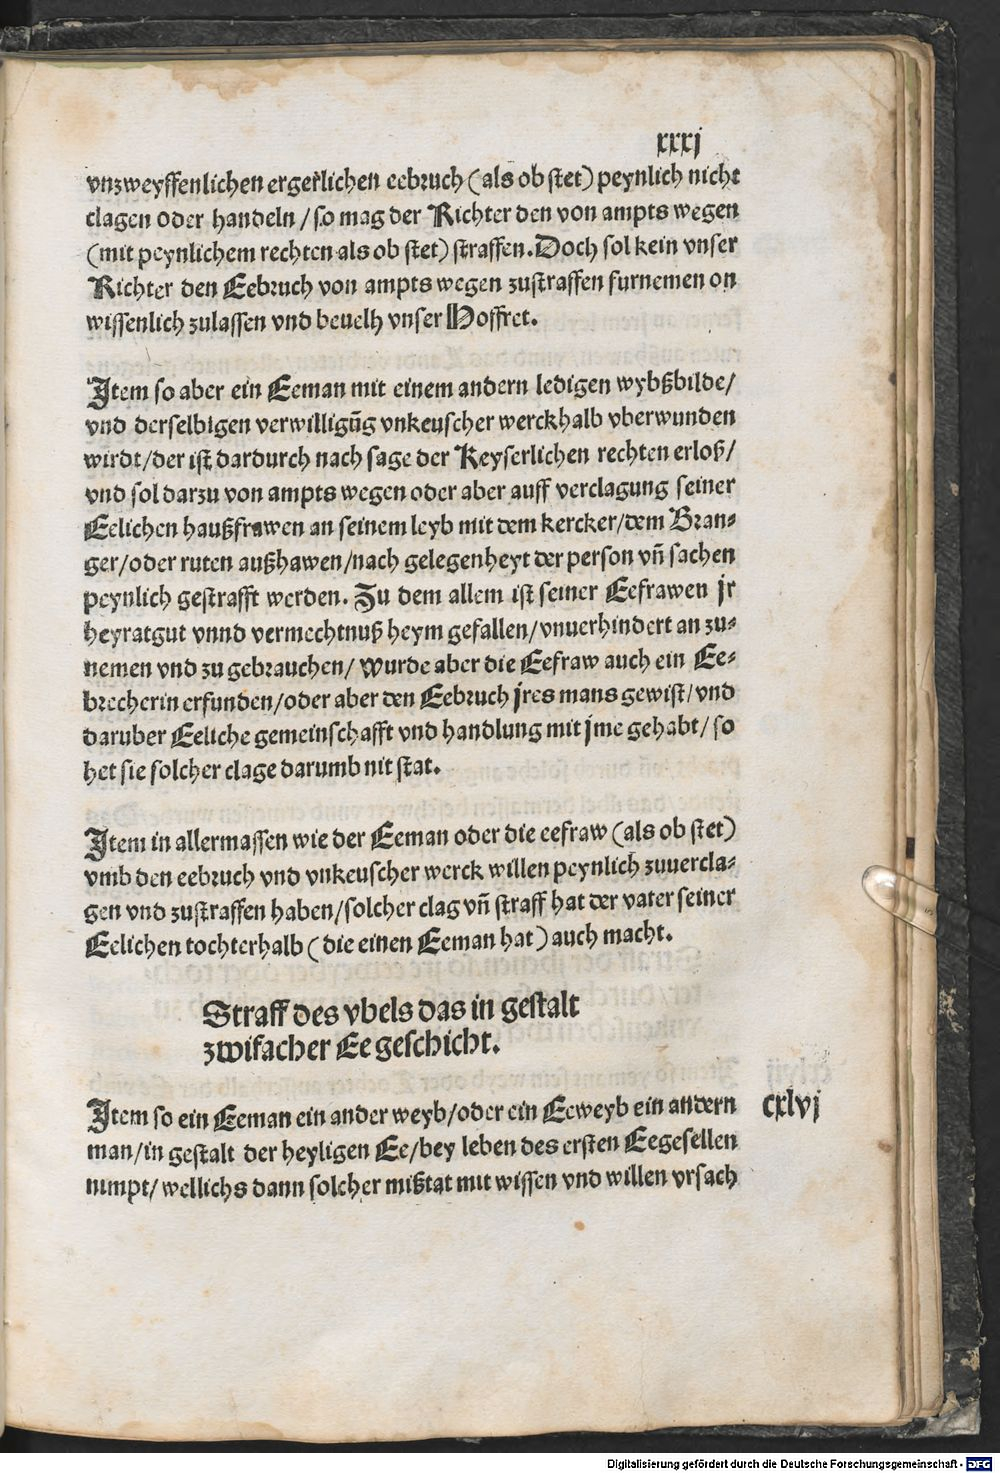 xxxj
vnzweyffenlichen ergerlichen eebruch (als ob stet) peynlich nicht
clagen oder handeln / so mag der Richter den von ampts wegen
(mit peynlichem rechten als ob stet) straffen. Doch sol kein vnser
Richter den Eebruch von ampts wegen zustraffen furnemen on
wissenlich zulassen vnd beuelh vnser Hoffret.
Jtem so aber ein Eeman mit einem andern ledigen wybßbilde /
vnd derselbigen verwilligūg vnkeuscher werckhalb vberwunden
wirdt / der ist dardurch nach sage der Keyserlichen rechten erloß /
vnd sol darzu von ampts wegen oder aber auff verclagung seiner
Eelichen haußfrawen an seinem leyb mit dem kercker / dem Bran⸗
ger / oder ruten außhawen / nach gelegenheyt der person vn̄ sachen
peynlich gestrafft werden. Zu dem allem ist seiner Eefrawen jr
heyratgut vnnd vermechtnuß heym gefallen / vnuerhindert an zu⸗
nemen vnd zu gebrauchen / wurde aber die Eefraw auch ein Ee⸗
brecherin erfunden / oder aber den Eebruch jres mans gewist / vnd
daruber Eeliche gemeinschafft vnd handlung mit jme gehabt / so
het sie solcher clage darumb nit stat.
Jtem in allermassen wie der Eeman oder die eefraw (als ob stet)
vmb den eebruch vnd vnkeuscher werck willen peynlich zuuercla⸗
gen vnd zustraffen haben / solcher clag vn̄ straff hat der vater seiner
Eelichen tochterhalb (die einen Eeman hat) auch macht.
Straff des vbels das in gestalt
zwifacher Ee geschicht.
Jtem so ein Eeman ein ander weyb / oder ein Eeweyb ein andern cxlvj
man / in gestalt der heyligen Ee / bey leben des ersten Eegesellen
nimpt / wellichs dann solcher mißtat mit wissen vnd willen vrsach
Digitalisierung gefördert durch die Deutsche Forschungsgemeinschaft - DFG